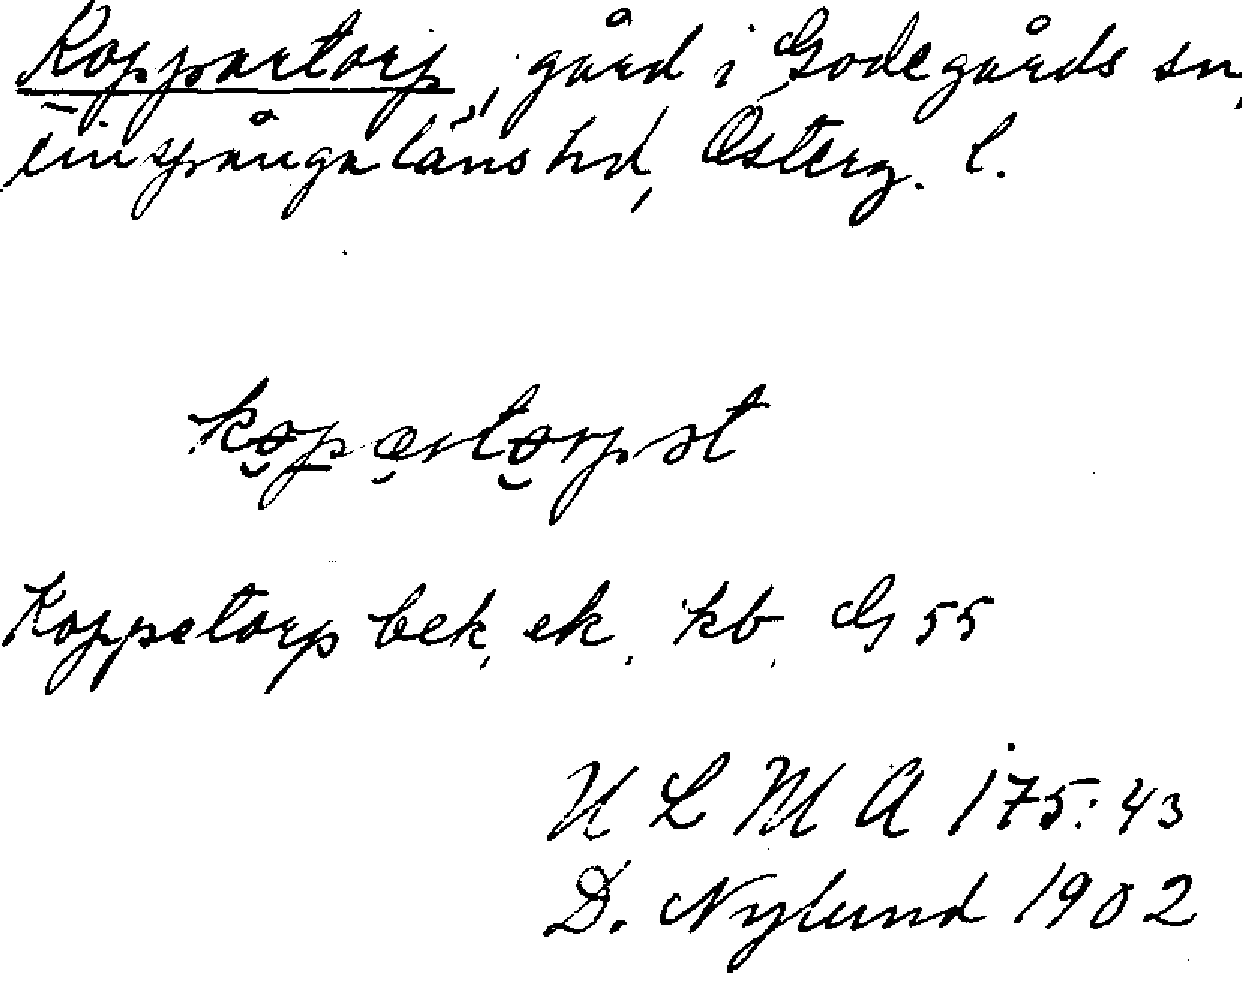 Koppartorp, gård i Godegårds sn,
Finspånga läns hd, Österg. l.
Koppetorp bek. ek. kb. G 55
ULMA 175:43
D. Nylund 1902